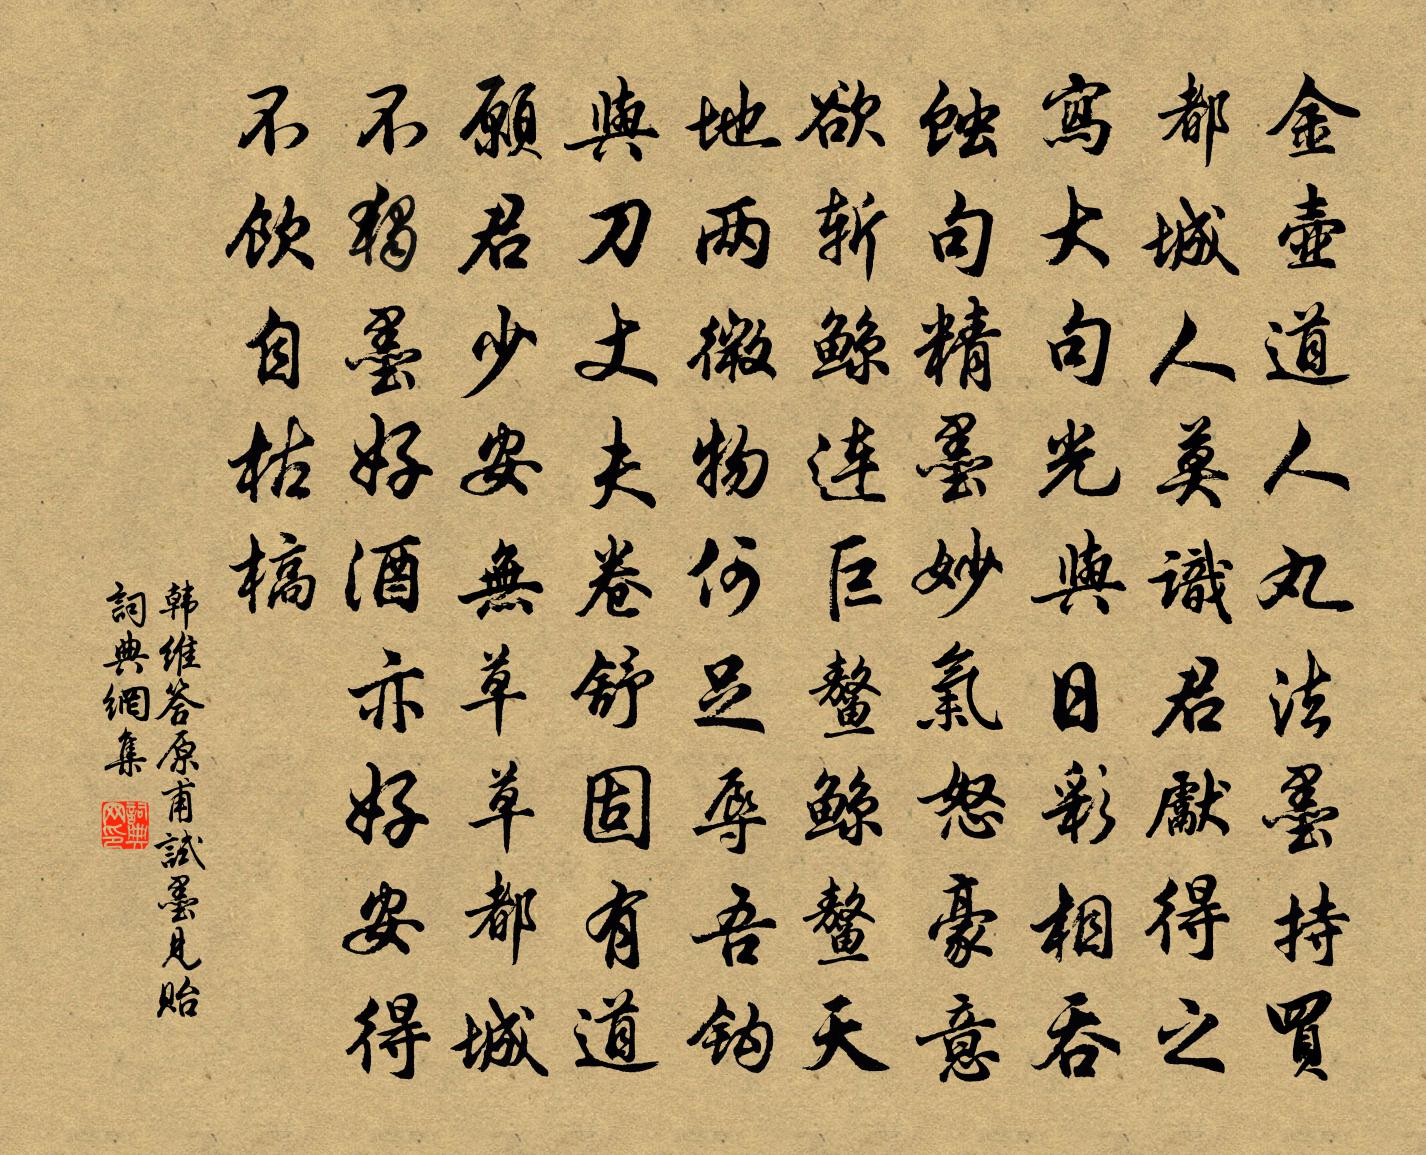 金壺道人丸法墨持買
都城人莫識君獻得之
寫大句光與日彩相吞
蝕句精墨妙氣怒豪意
欲斬鯨连巨鳌鯨鳌天
地两微物何足辱吾鈎
與刀丈夫卷舒固有道
願君少安無草草都城
不獨墨好酒亦好安得
不飲自枯槁
韩維答原甫試墨見貽
詞典網集